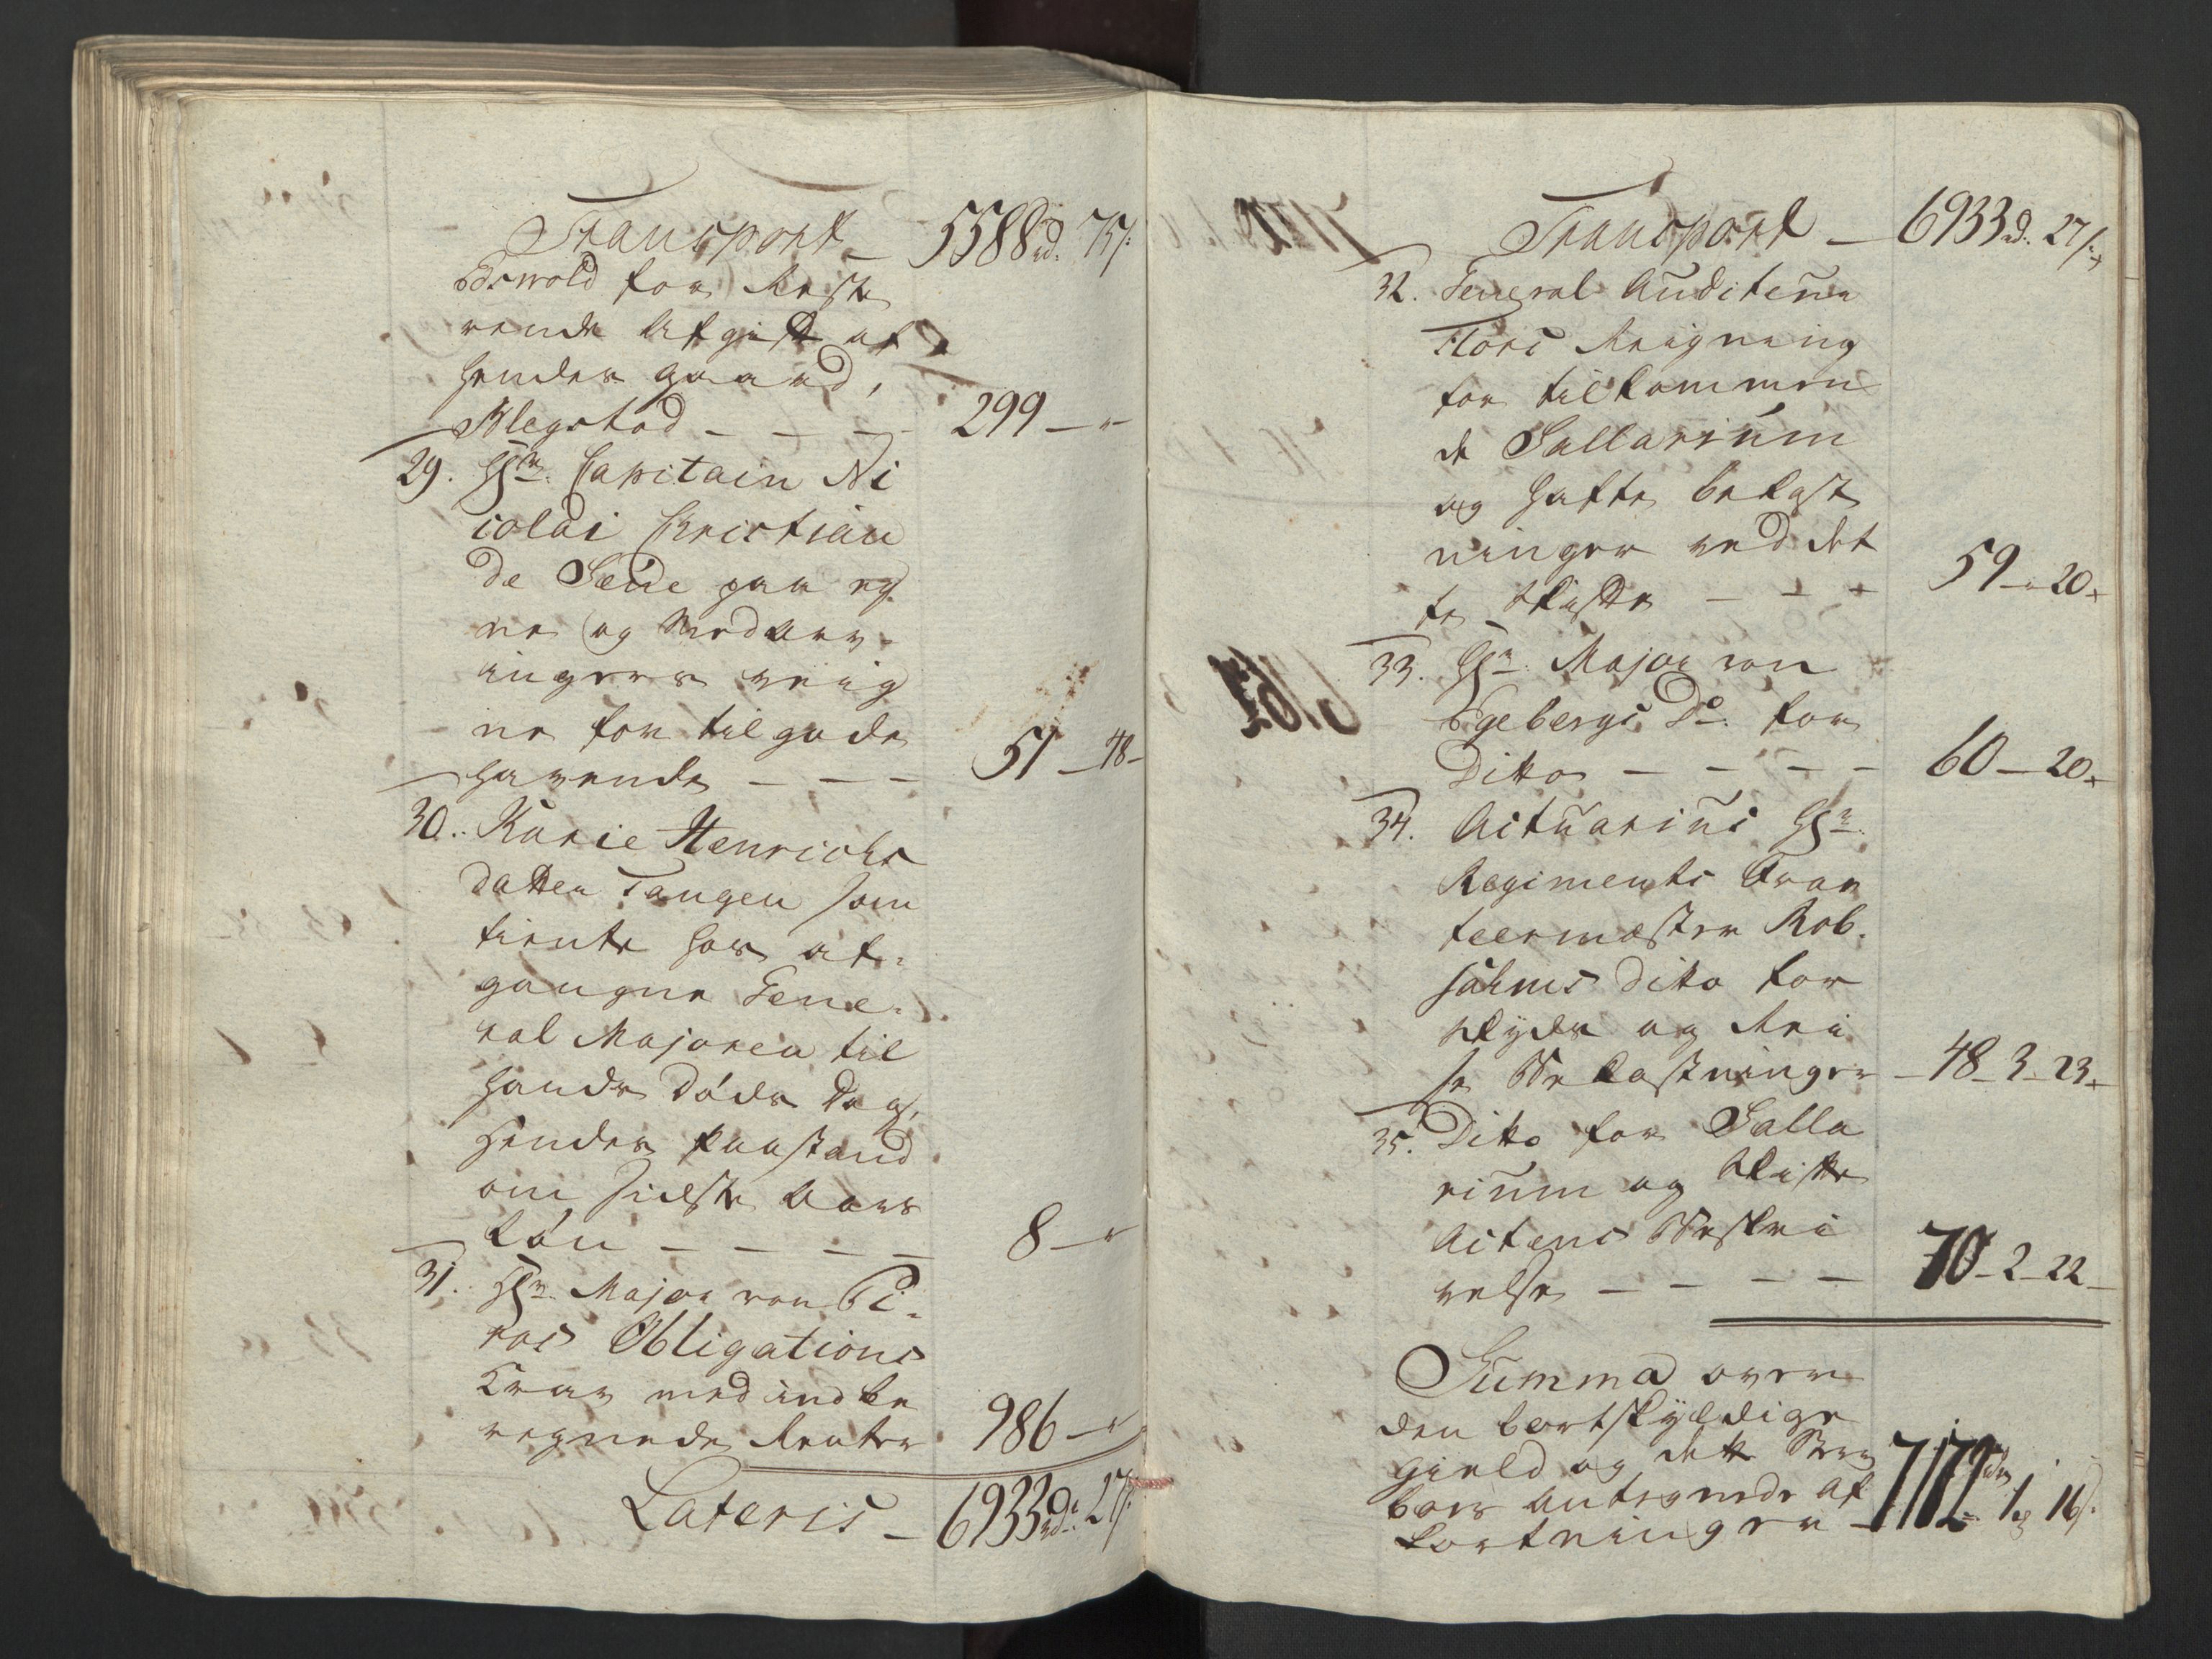 Transport – 5588 rd. 75 s:
Edswold for Reste
rende Afgift af
hendes Gaard,
Blegstad – – – – 299 – "–
29. Hr. Capitain Ni
colai Christian
de Seüe paa eg
ne og Medarv-
ingers veig
ne for tilgode
havende – – – 51 – 48 –
30. Karie Henrichs
datter Tangen som
tiente hos af-
gangne Gene-
ral Majoren til
hands Døds Dag,
hendes Paastand
om sidste Aars
Løn – – – – 8 – "
31. Hr. Major von
Obligations
Krav med indbe
regnede Renter 986 – "
Lateris – 6933 rd. 27 s:
Transport – 6933 rd. 27 s:
32. General Auditeur
Flors Reigning
for tilkommen
de Sallarium
og hafte bekost
ninger ved det
te Skifte – – – 59 – 20 –
33. Hr. Major von
Ditto for
Ditto – – – – 60 – 20 –
34. Actuarius Hr.
Regiments Qvar
teermester Rob-
sahms Ditto for
Skyds og Rei
se Bekostninger – 48 – 3 – 23 –
35. Ditto for Salla
rium og Skifte
Actens Beskri
velse – – – – 70 – 2 – 22 –
Summa over
den bortskyldige
Gield og dette
boes Antegnede Af
kortninger – 7172 rdr 1 16 s.